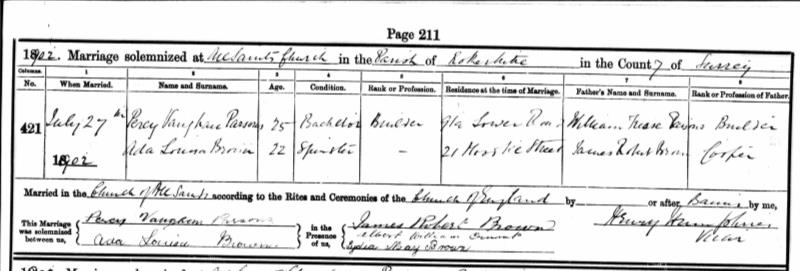 Page 211
1902. Marriage solemnized at All Saints Church in the Parish of Rotherhithe in the County of Surrey
Columns. 1 2 3 4 5 6 7 8
No. When Married. Name and Surname. Age. Condition. Rank or Profession. Residence at the time of Marriage. Father's Name and Surname. Rank or Profession of Father.
421 July 27th Percy Vaughan Parsons 25 Bachelor Builder 91a Lower Road William Parsons Builder
1902 Ada Louisa Brown 22 Spinster – 21 Street James Robert Brown Cooper
Married in the Church of All Saints according to the Rites and Ceremonies of the Church of England by or after Banns by me,
This Marriage was solemnized between us,
Percy Vaughan Parsons
Ada Louisa Brown
in the Presence of us,
James Robert Brown
Albert William
Lydia May Brown
Henry
Vicar
Marriage solemnized at